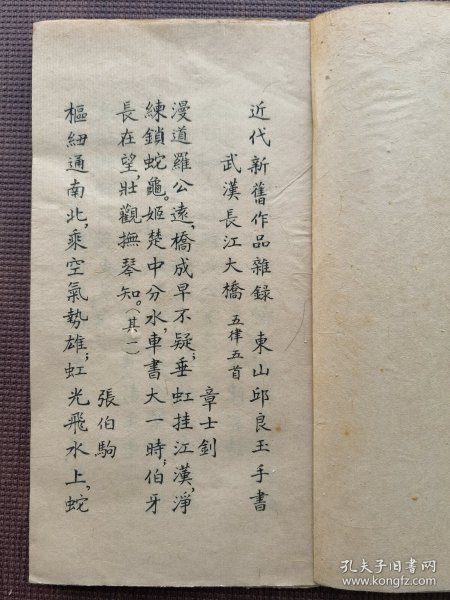 近代新舊作品雜録　東山邱良玉手書
武漢長江大橋　五律五首
章士釗
漫道羅公遠，橋成早不疑；垂虹挂江漢，淨
練鎖蛇龜。姬楚中分水，車書大一時；伯牙
長在望，壯觀撫琴知。（其一）
張伯駒
樞紐通南北，乘空氣勢雄；虹光飛水上，蛇
孔夫子旧书网
www.kongfz.com